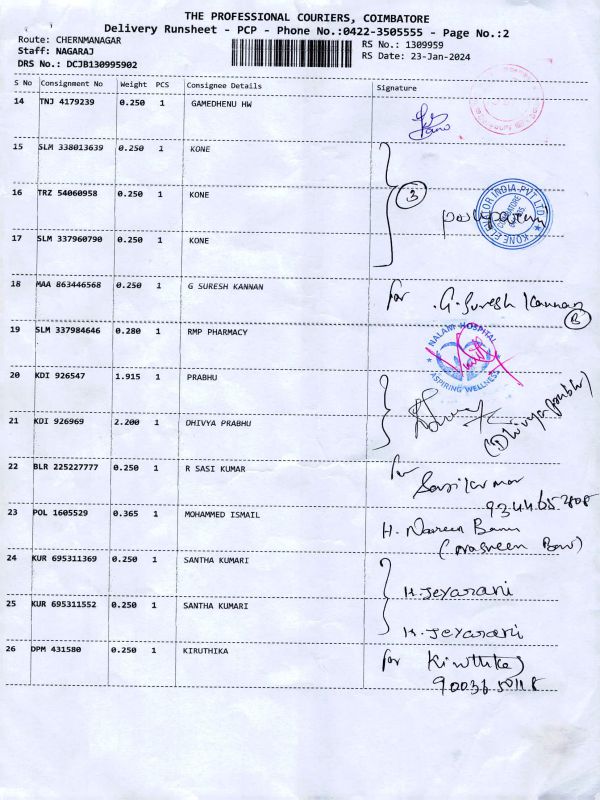 THE PROFESSIONAL COURIERS, COIMBATORE
Delivery Runsheet - PCP - Phone No.:0422-3505555 - Page No.:2
Route: CHERNMANAGAR
Staff: NAGARAJ
DRS No.: DCJB130995902
RS No.: 1309959
RS Date: 23-Jan-2024
S No Consignment No Weight PCS Consignee Details Signature
14 TNJ 4179239 0.250 1 GAMEDHENU HW
15 SLM 338013639 0.250 1 KONE
3
16 TRZ 54060958 0.250 1 KONE
KONE ELEVATOR INDIA PVT LTD
COIMBATORE
17 SLM 337960790 0.250 1 KONE
18 MAA 863446568 0.250 1 G SURESH KANNAN for G. Suresh Kannan
19 SLM 337984646 0.280 1 RMP PHARMACY
NALAM HOSPITAL
ASPIRING WELLNESS
20 KDI 926547 1.915 1 PRABHU
21 KDI 926969 2.200 1 DHIVYA PRABHU (Dhivya prabhu)
22 BLR 225227777 0.250 1 R SASI KUMAR for Sasikumar
23 POL 1605529 0.365 1 MOHAMMED ISMAIL H. Nasreen Banu
24 KUR 695311369 0.250 1 SANTHA KUMARI H. Jeyarani
25 KUR 695311552 0.250 1 SANTHA KUMARI H. Jeyarani
26 DPM 431580 0.250 1 KIRUTHIKA for Kiruthika